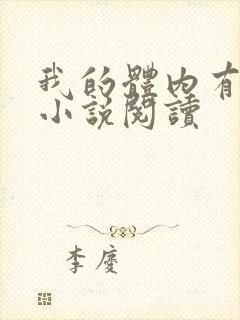 我的體內有
小說閱讀
李慶